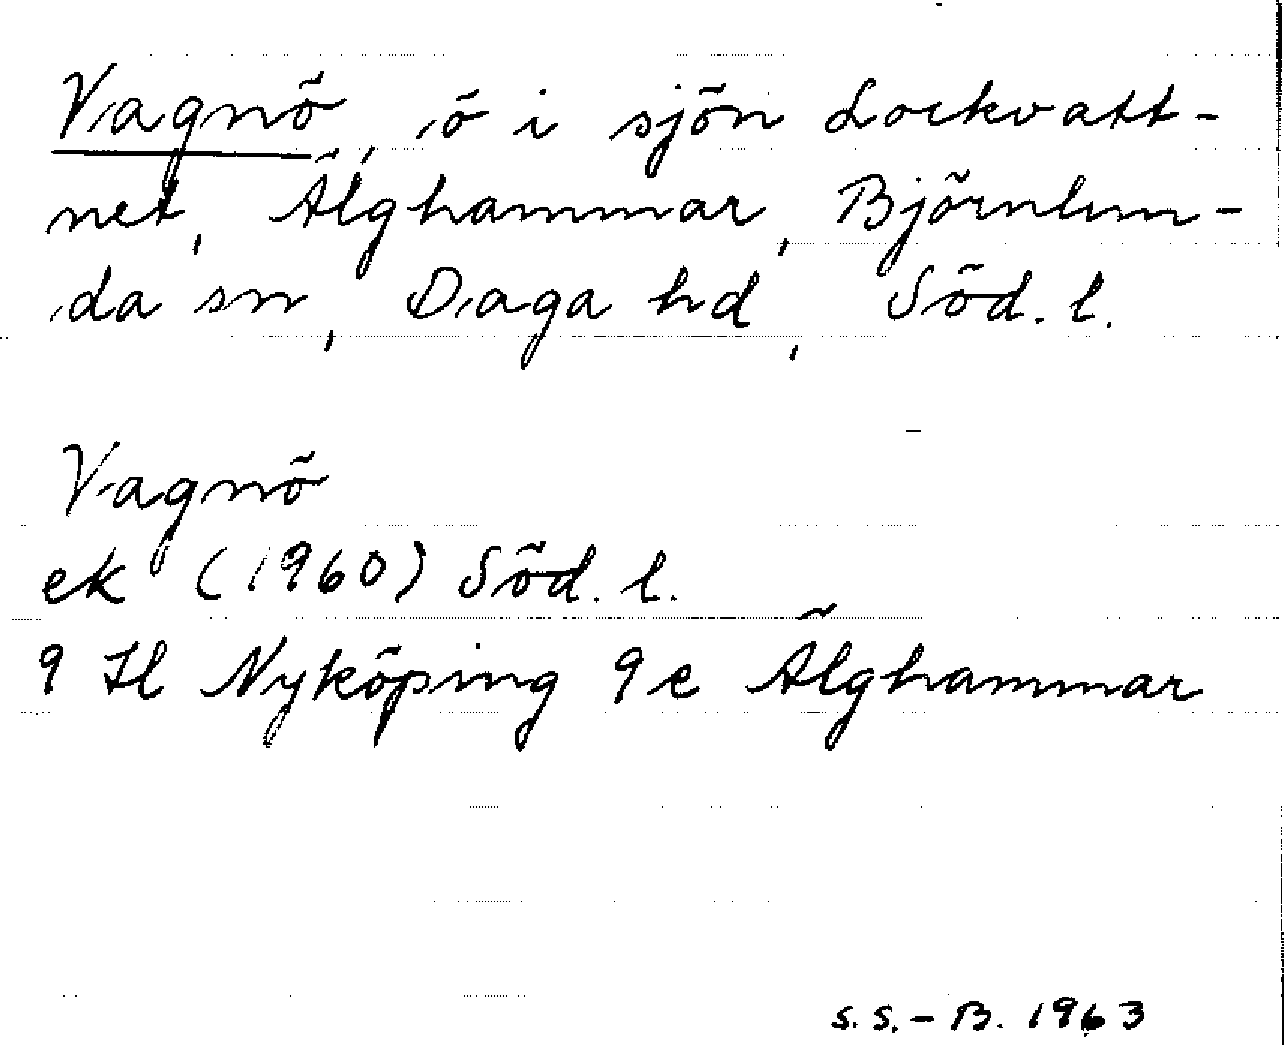 Vagnö, ö i sjön Lockvatt-
net, Älghammar, Björnlun-
da sn, Daga hd, Söd. l.
Vagnö
ek (1960) Söd. l.
9 H Nyköping 9 e Älghammar
S.S.-B. 1963